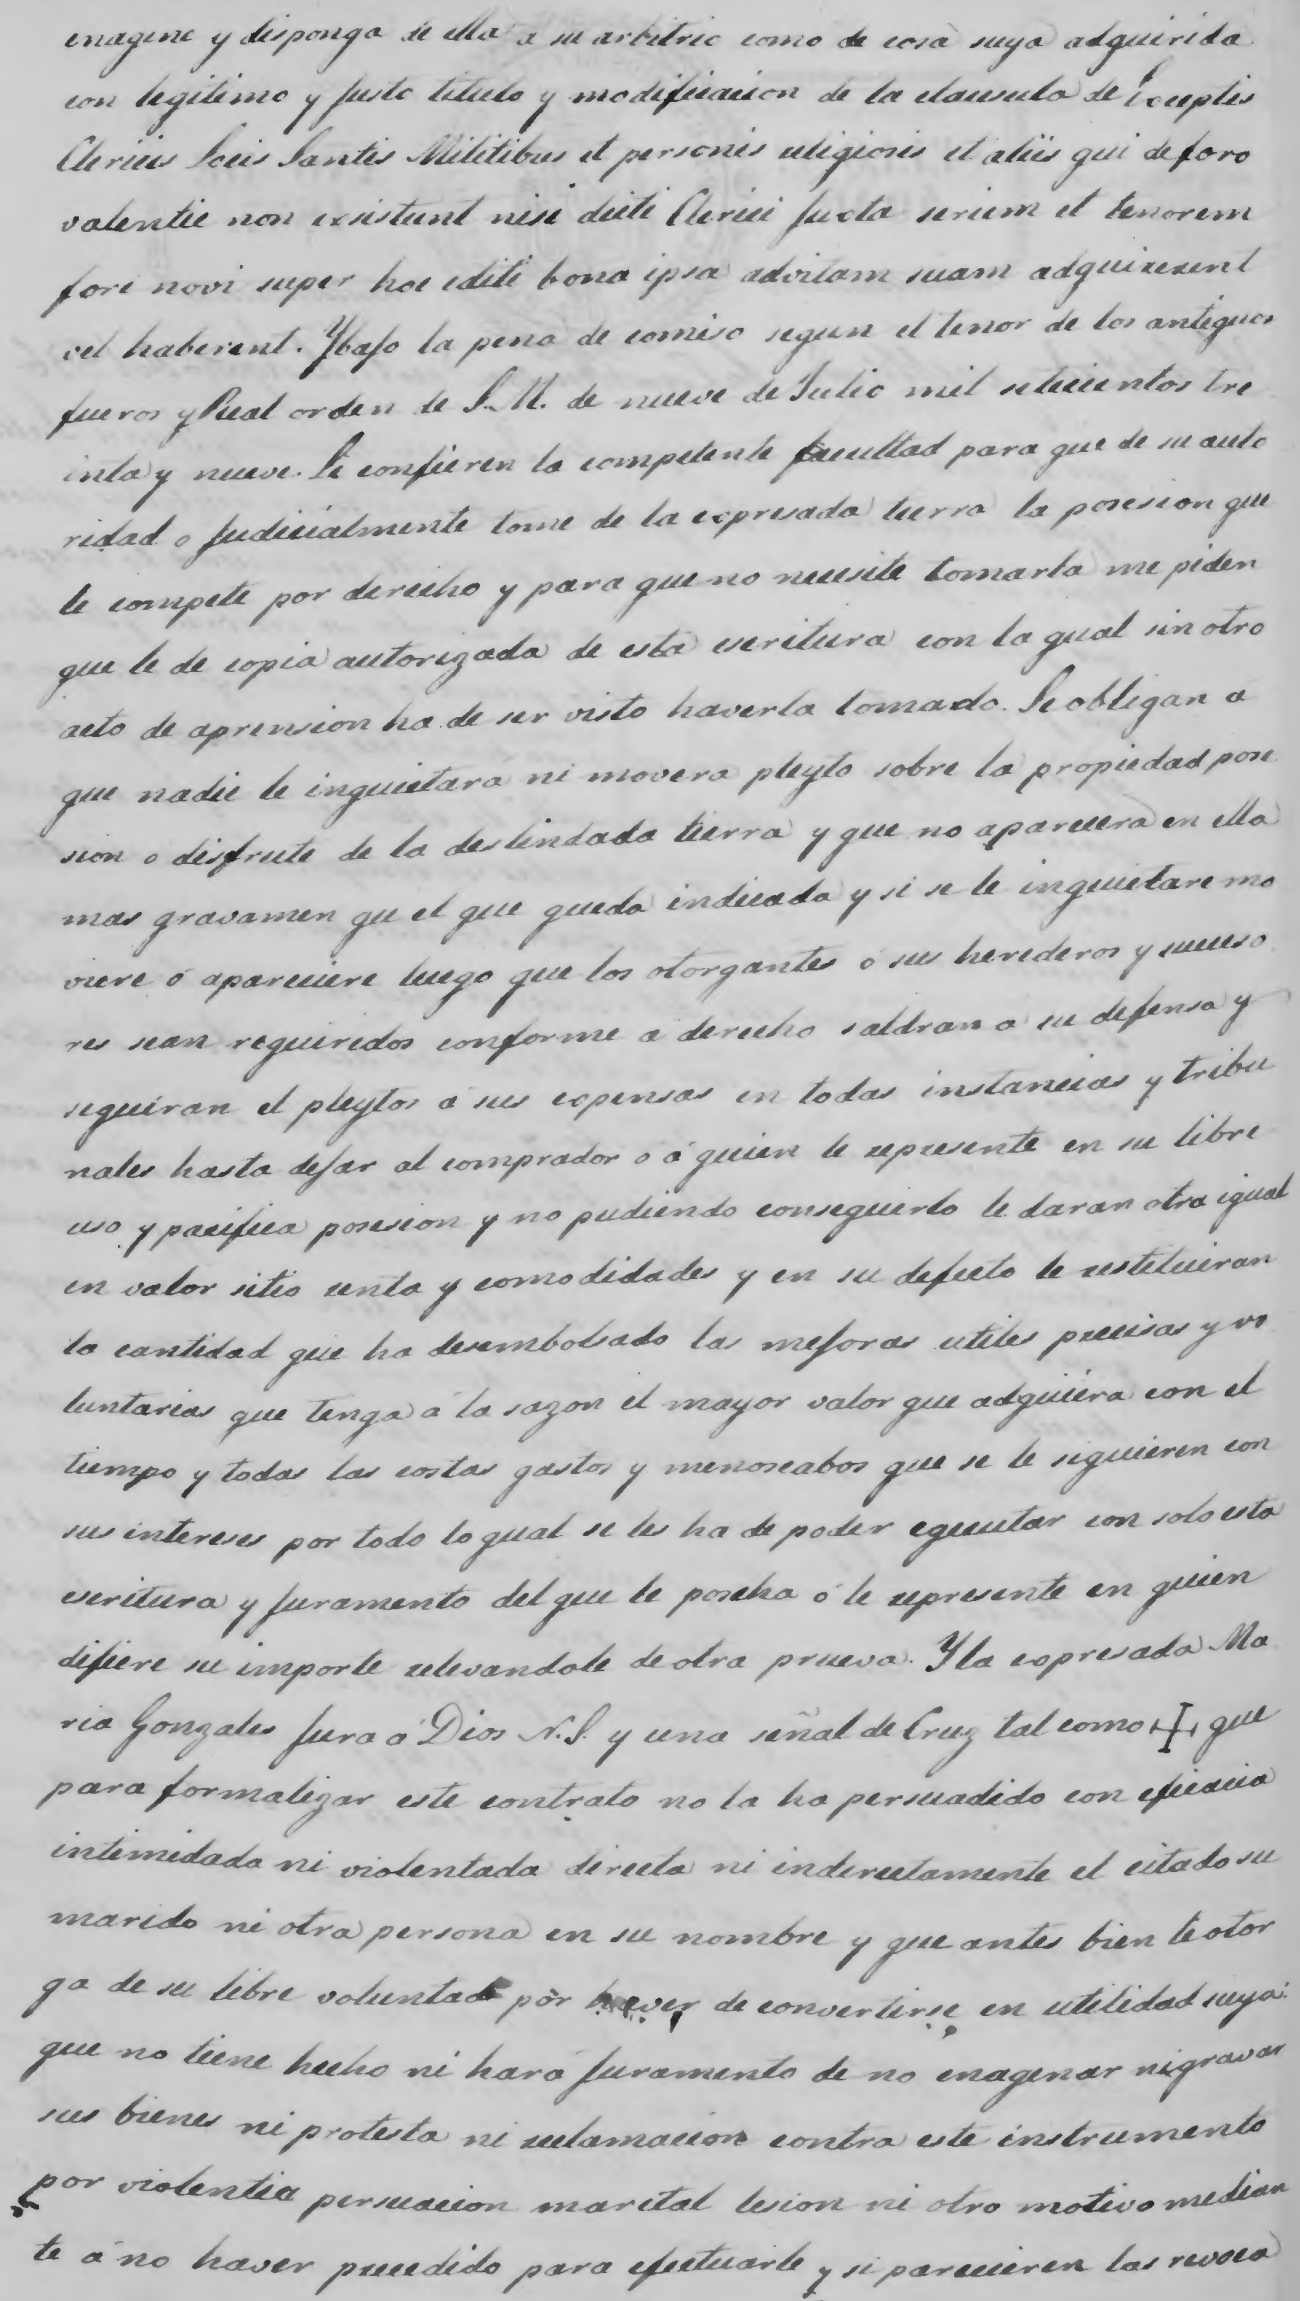 enagene y disponga de ella a su arbitrio como de cosa suya adquirida
con legitimo y justo titulo y modificacion de la clausula de Exceptis
Clericis Locis Santis Militibus et personis religiosis et aliis qui de foro
valentie non existunt nisi dicti Clerici juxta seriem et tenorem
fori novi super hoc editi bona ipsa advitam suam adquirerent
vel haberent. Y bajo la pena de comiso segun el tenor de los antiguos
fueros y Real orden de S.M. de nueve de Julio mil setecientos tre
inta y nueve. Le confieren la competente facultad para que de su auto
ridad o judicialmente tome de la expresada tierra la posesion que
le compete por derecho y para que no necesite tomarla me piden
que le de copia autorizada de esta escritura con la qual sin otro
acto de aprension ha de ser visto haverla tomado. Se obligan a
que nadie le inquietara ni movera pleyto sobre la propiedad pose
sion o disfrute de la deslindada tierra y que no aparecera en ella
mas gravamen qu el que queda indicado y si se le inquietare mo
viere ó apareciere luego que los otorgantes ó sus herederos y suceso
res sean requiridos conforme a derecho saldran a su defensa y
seguiran el pleytos á sus expensas en todas instancias y tribu
nales hasta dejar al comprador ó á quien le represente en su libre
uso y pacifica posesion y no pudiendo conseguirlo le daran otra igual
en valor sitio renta y comodidades y en su defecto le restituiran
la cantidad que ha desembolsado las mejoras utiles precisas y vo
luntarias que tenga á la sazon el mayor valor que adquiera con el
tiempo y todas las costas gastos y menoscabos que se le siguieren con
sus intereses por todo lo qual se les ha de poder egecutar con solo esta
escritura y juramento del que le poseha ó le represente en quien
difiere su importe relevandole de otra prueva. Y la expresada Ma
ria Gonzales jura á Dios N.S. y una señal de Cruz tal como ✢ que
para formalizar este contrato no la ha persuadido con eficacia
intimidado ni violentada directa ni indirectamente el citado su
marido ni otra persona en su nombre y que antes bien le otor
ga de su libre voluntad por haver de convertirse en utilidad suya:
que no tiene hecho ni hara juramento de no enagenar ni gravar
sus bienes ni protesta ni reclamacion contra este instrumento
por violentia persuacion marital lesion ni otro motivo median
te á no haver precedido para efectuarle y si parecieren las revoca